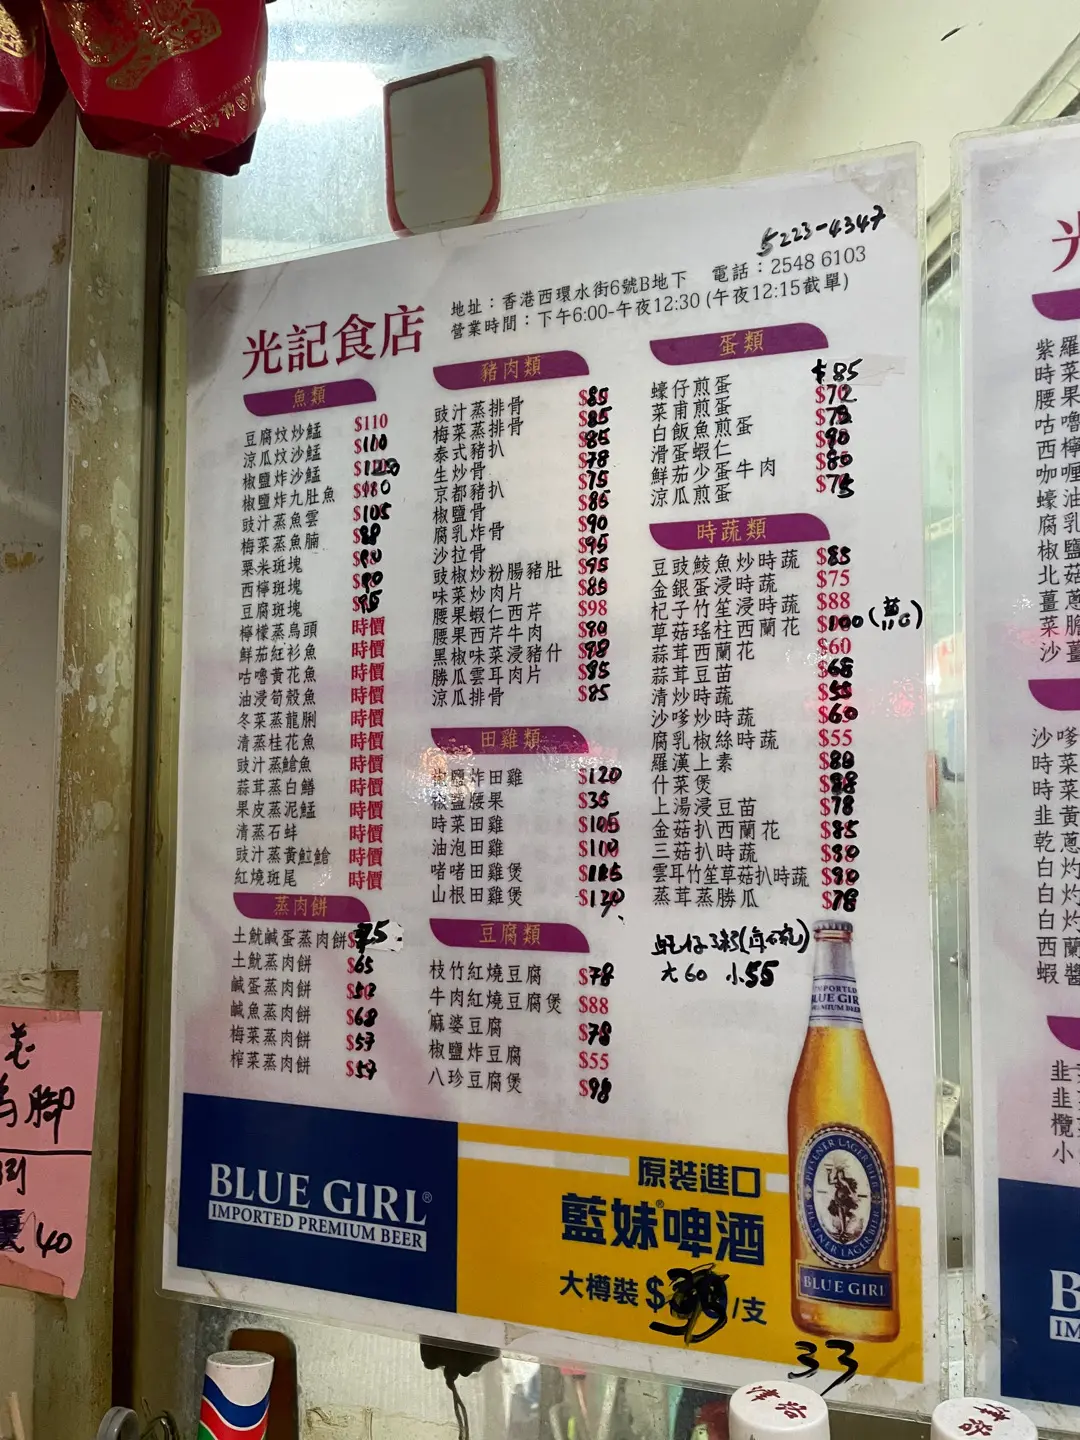 5223-4347
地址：香港西環水街6號B地下 電話：2548 6103
營業時間：下午6:00-午夜12:30 (午夜12:15截單)
光記食店
魚類
豆腐炆炒鯭 $110
涼瓜炆沙鯭 $100
椒鹽炸沙鯭
椒鹽炸九肚魚
豉汁蒸魚雲 $105
梅菜蒸魚腩 $88
粟米斑塊 $90
西檸斑塊 $90
豆腐斑塊 $95
檸檬蒸烏頭 時價
鮮茄紅衫魚 時價
咕嚕黃花魚 時價
油浸筍殼魚 時價
冬菜蒸龍脷 時價
清蒸桂花魚 時價
豉汁蒸鯧魚 時價
蒜茸蒸白鱔 時價
果皮蒸泥鯭 時價
清蒸石蚌 時價
豉汁蒸黃鮏鱠 時價
紅燒斑尾 時價
蒸肉餅
土魷鹹蛋蒸肉餅 $75
土魷蒸肉餅 $65
鹹蛋蒸肉餅 $50
鹹魚蒸肉餅 $68
梅菜蒸肉餅 $57
榨菜蒸肉餅 $57
豬肉類
豉汁蒸排骨 $85
梅菜蒸排骨 $85
泰式豬扒 $85
生炒骨 $78
京都豬扒 $75
椒鹽骨 $85
腐乳炸骨 $90
沙拉骨 $95
豉椒炒粉腸豬肚 $95
味菜炒肉片 $85
腰果蝦仁西芹 $98
腰果西芹牛肉 $90
黑椒味菜浸豬什 $98
勝瓜雲耳肉片 $85
涼瓜排骨 $85
田雞類
椒鹽炸田雞 $120
椒鹽腰果 $35
時菜田雞 $105
油泡田雞 $100
啫啫田雞煲 $115
山根田雞煲 $120
豆腐類
枝竹紅燒豆腐 $78
牛肉紅燒豆腐煲 $88
麻婆豆腐 $78
椒鹽炸豆腐 $55
八珍豆腐煲 $98
蛋類
蠔仔煎蛋 $85
菜甫煎蛋 $72
白飯魚煎蛋 $78
滑蛋蝦仁 $90
鮮茄少蛋牛肉 $80
涼瓜煎蛋 $75
時蔬類
豆豉鯪魚炒時蔬 $85
金銀蛋浸時蔬 $75
杞子竹笙浸時蔬 $88
草菇瑤柱西蘭花 $100
蒜茸西蘭花 $60
蒜茸豆苗 $68
清炒時蔬 $55
沙嗲炒時蔬 $60
腐乳椒絲時蔬 $55
羅漢上素 $80
什菜煲 $88
上湯浸豆苗 $78
金菇扒西蘭花 $85
三菇扒時蔬 $80
雲耳竹笙草菇扒時蔬 $90
蒸茸蒸勝瓜 $78
大60 小55
BLUE GIRL®
IMPORTED PREMIUM BEER
原裝進口
藍妹®啤酒
大樽裝 $ /支
33
IMPORTED
BLUE GIRL
PREMIUM BEER
PILSENER LAGER BEER
PILSENER LAGER BEER
BLUE GIRL
腳
40